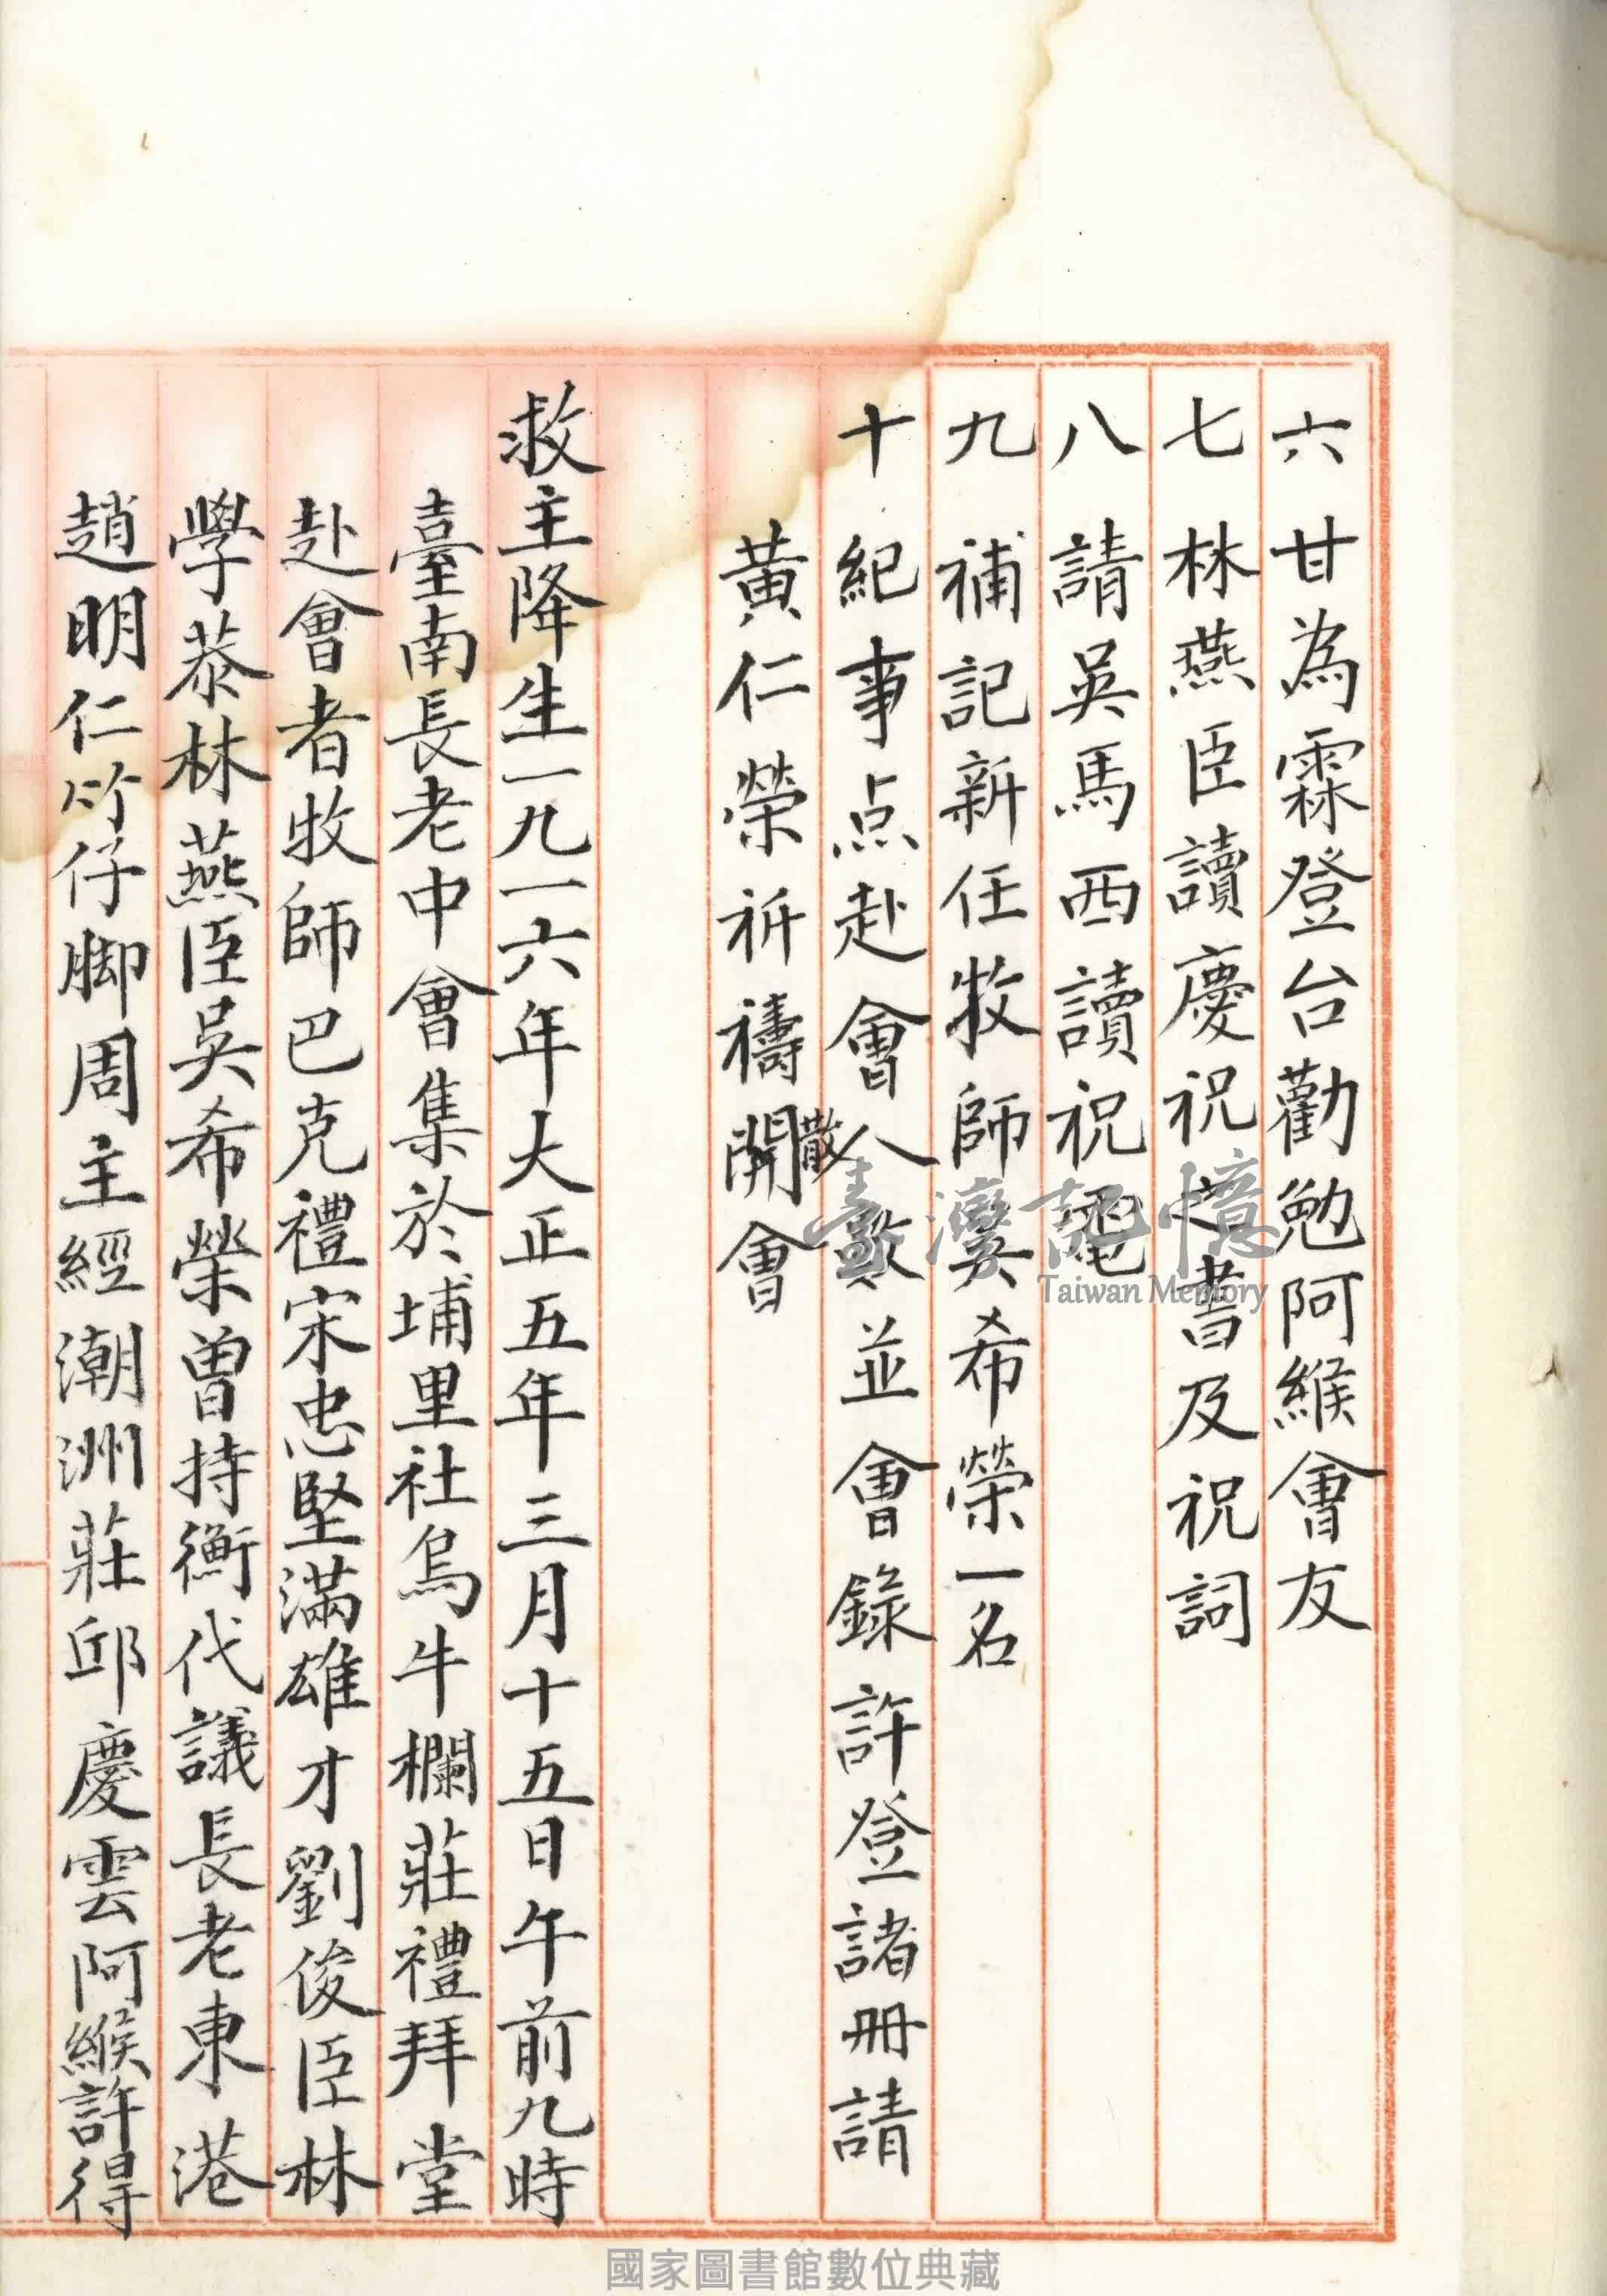 六 甘為霖登台勸勉阿緱會友
七 林燕臣讀慶祝之書及祝詞
八 請吳馬西讀祝電
九 補記新任牧師吳希榮一名
十 紀事点赴會人數並會錄許登諸冊請
黃仁榮祈禱開散會
救主降生一九一六年大正五年三月十五日午前九時
臺南長老中會集於埔里社烏牛欄莊禮拜堂
赴會者牧師巴克禮宋忠堅滿雄才劉俊臣林
學恭林燕臣吳希榮曾持衡代議長老東港
趙明仁竹仔脚周主經潮洲莊邱慶雲阿緱許得
臺灣記憶
Taiwan Memory
國家圖書館數位典藏